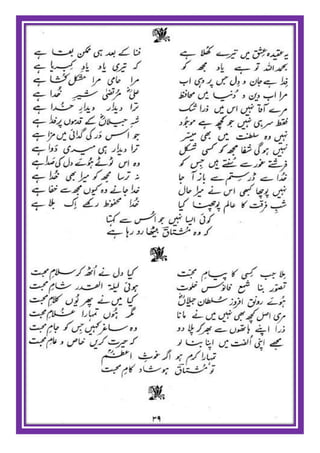 یہ عقیدہ عشق میں تیرے کھلا ہے فنا کے بعد ہی ممکن بقا ہے
بحمد اللہ تو ہے یاد مجھ کو کہ تیری یاد یادِ کبریا ہے
فدا ہے جان و دل میں پر یہی اب مرا حامی مرا مشکل کشا ہے
مرا اب دین و دنیا میں محافظ علیؓ مرتضیٰ شیرِ خدا ہے
مرے آقا نہیں اس میں ذرا شک ترا دیدار دیدارِ خدا ہے
فقط سر ہی نہیں جو کچھ ہے موجود شہِ جیلاںؓ کے قدموں پر فدا ہے
نہیں وہ سلطنت میں بھی میسر جو اس در کی گدائی میں مزا ہے
نہیں ہوگی شفا مجھ کو کسی شکل ترا دیدار ہی میری دوا ہے
فرشتے غور سے سنتے ہیں جس کو وہ اس ٹوٹے ہوئے دل کی صدا ہے
خدا سے ڈر ستم سے باز آ جا نہ ترسا مجھ کو میرا بھی خدا ہے
نہیں پوچھا کبھی اس نے میرا حال خدا جانے وہ کیوں مجھ سے خفا ہے
شبِ فرقت کا عالم پوچھنا کیا خدا محفوظ رکھے اک بلا ہے
کوئی ایسا نہیں جو اُس سے کہتا
کہ وہ مشتاق بیٹھا رو رہا ہے
ملا جب کسی کا پیامِ محبت کیا دل نے اُٹھ کر سلامِ محبت
تصور بنا شمعِ فانوسِ خلوت ہوئی لیلۃ القدر شامِ محبت
ہوئے رونق افروز سلطانِ جیلاںؓ کیا میں نے پھر یوں کلامِ محبت
مری اصل کچھ بھی نہیں میں نے مانا مگر ہوں تمہارا غلامِ محبت
ذرا اپنے ہاتھوں سے بھر کر پلا دو وہ ساغر کہیں جس کو جامِ محبت
مجھے اپنی اُلفت میں اپنا بنا لو کہ حیرت کریں خاص و عامِ محبت
تمہارا کرم ہو اگر غوثِ اعظمؓ
تو مشتاق ہو شاد کامِ محبت
۳۹